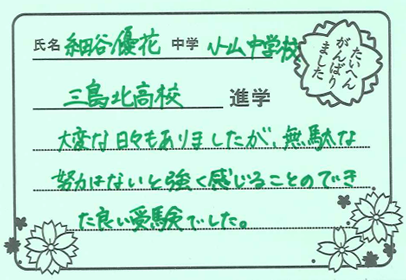 氏名 細谷優花 中学 小山中学校
たいへん
がんばり
ました
三島北高校 進学
大変な日々もありましたが、無駄な
努力はないと強く感じることのでき
た良い受験でした。